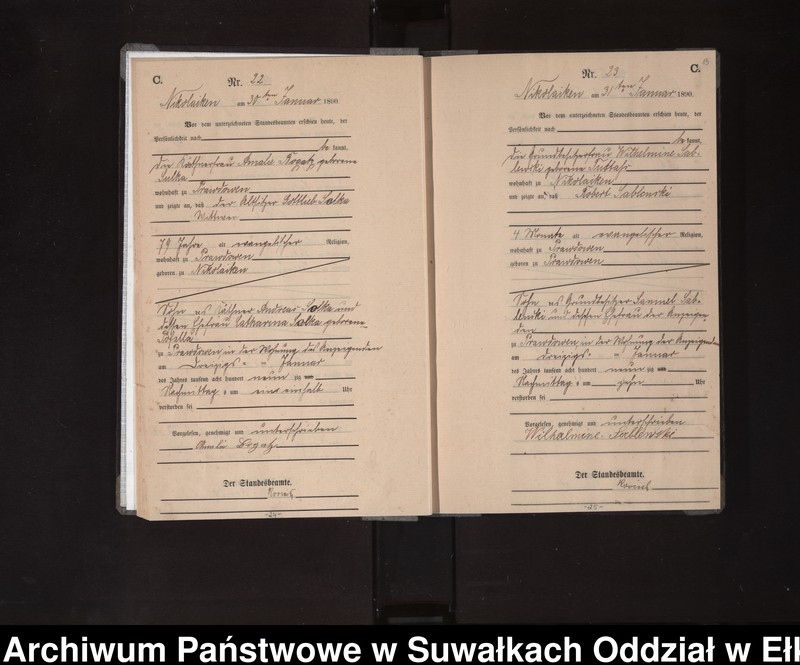 C.
Nr. 22
Nikolaiken am 30ten Januar 1890.
Vor dem unterzeichneten Standesbeamten erschien heute, der
Persönlichkeit nach
be kannt,
die Käthnerfrau Amalie Bogatz geborene
Salka
wohnhaft zu Prawdowen
und zeigte an, daß der Altsitzer Gottlieb Salka
Wittwer
79 Jahre alt evangelischer Religion,
wohnhaft zu Prawdowen
geboren zu Nikolaiken
Sohn des Käthner Andreas Salka und
dessen Ehefrau Catharina Salka geborene
zu Prawdowen, in der Wohnung des Anzeigenden
am dreizigs- Januar
des Jahres tausend acht hundert neun zig
Nachmittag s um ein einhalb Uhr
verstorben sei
Vorgelesen, genehmigt und unterschrieben
Amalie Bogatz
Der Standesbeamte.
-24-
13
Nr. 23 C.
Nikolaiken am 31ten Januar 1890.
Vor dem unterzeichneten Standesbeamten erschien heute, der
Persönlichkeit nach
be kannt,
die Grundbesitzerfrau Wilhelmine Sab-
lewski geborene
wohnhaft zu Nikolaiken
und zeigte an, daß Robert Sablewski
4 Monate alt evangelischer Religion,
wohnhaft zu Prawdowen
geboren zu Prawdowen
Sohn des Grundbesitzer Samuel Sab-
lewski und dessen Ehefrau der Anzeigen-
den
zu Prawdowen, in der Wohnung der Anzeigenden
am dreizigs- Januar
des Jahres tausend acht hundert neun zig
Nachmittag s um zehn Uhr
verstorben sei
Vorgelesen, genehmigt und unterschrieben
Wilhelmine Sablewski
Der Standesbeamte.
-25-
Archiwum Państwowe w Suwałkach Oddział w Ełk